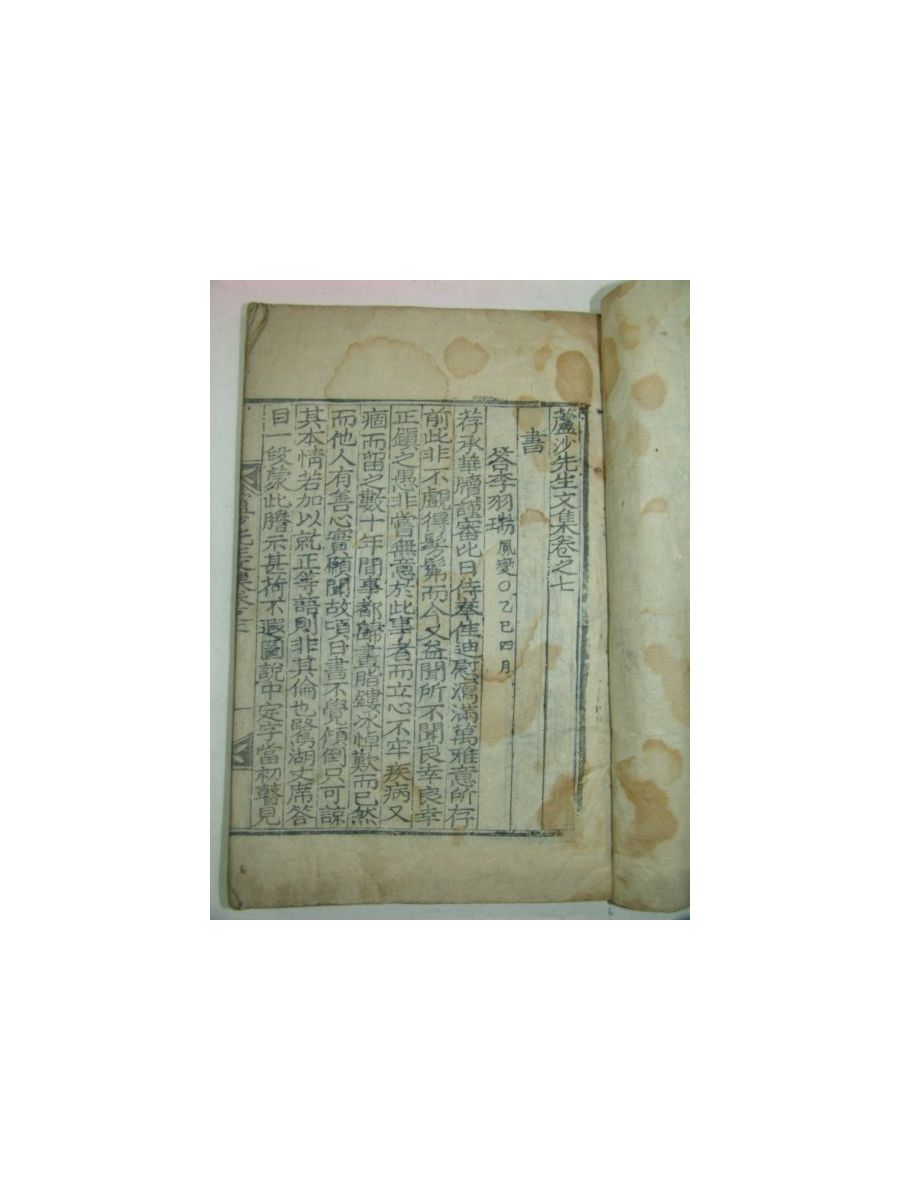 蘆沙先生文集卷之七
書
答李羽瑞 鳳燮○乙巳四月
荐承華牘謹審比日侍奉佳迪慰瀉滿萬雅意所存
前此非不覷得髣髴而今又益聞所不聞良幸良幸
正鎭之愚非嘗無意於此事者而立心不牢疾病又
痼而留之數十年間事都歸畫脂鏤冰悼歎而已然
而他人有善心實願聞故頃日書不覺傾倒只可諒
其本情若加以就正等語則非其倫也鷺湖丈席答
目一段蒙此謄示甚荷不遐圖說中定字當初瞥見